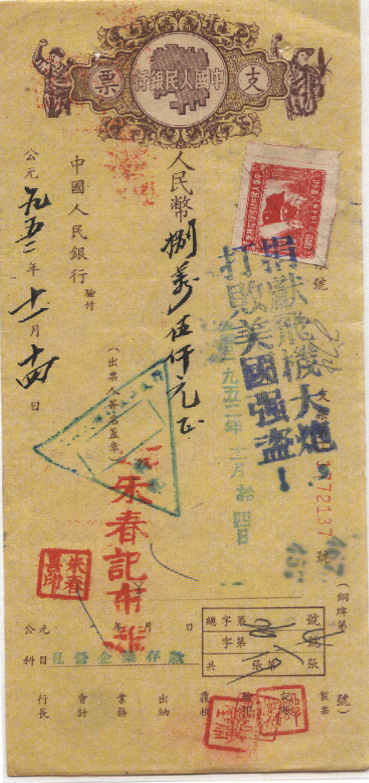 支票
中國人民銀行
號
支
1772137
號
捐獻飛機大炮
打敗美國强盜！
一九五二年十一月拾四日
人民幣捌萬伍仟元正
中國人民銀行
驗付
(出票人簽名蓋章)
朱春記布
公元一九五二年十一月十四日
朱春
記印
(銅牌第
號)
總字第
號
字第
號
共
張第
張
公元
年
月
日
科目
私營企業存款
製票
記帳
驗印
複核
出納
業務
會計
行長